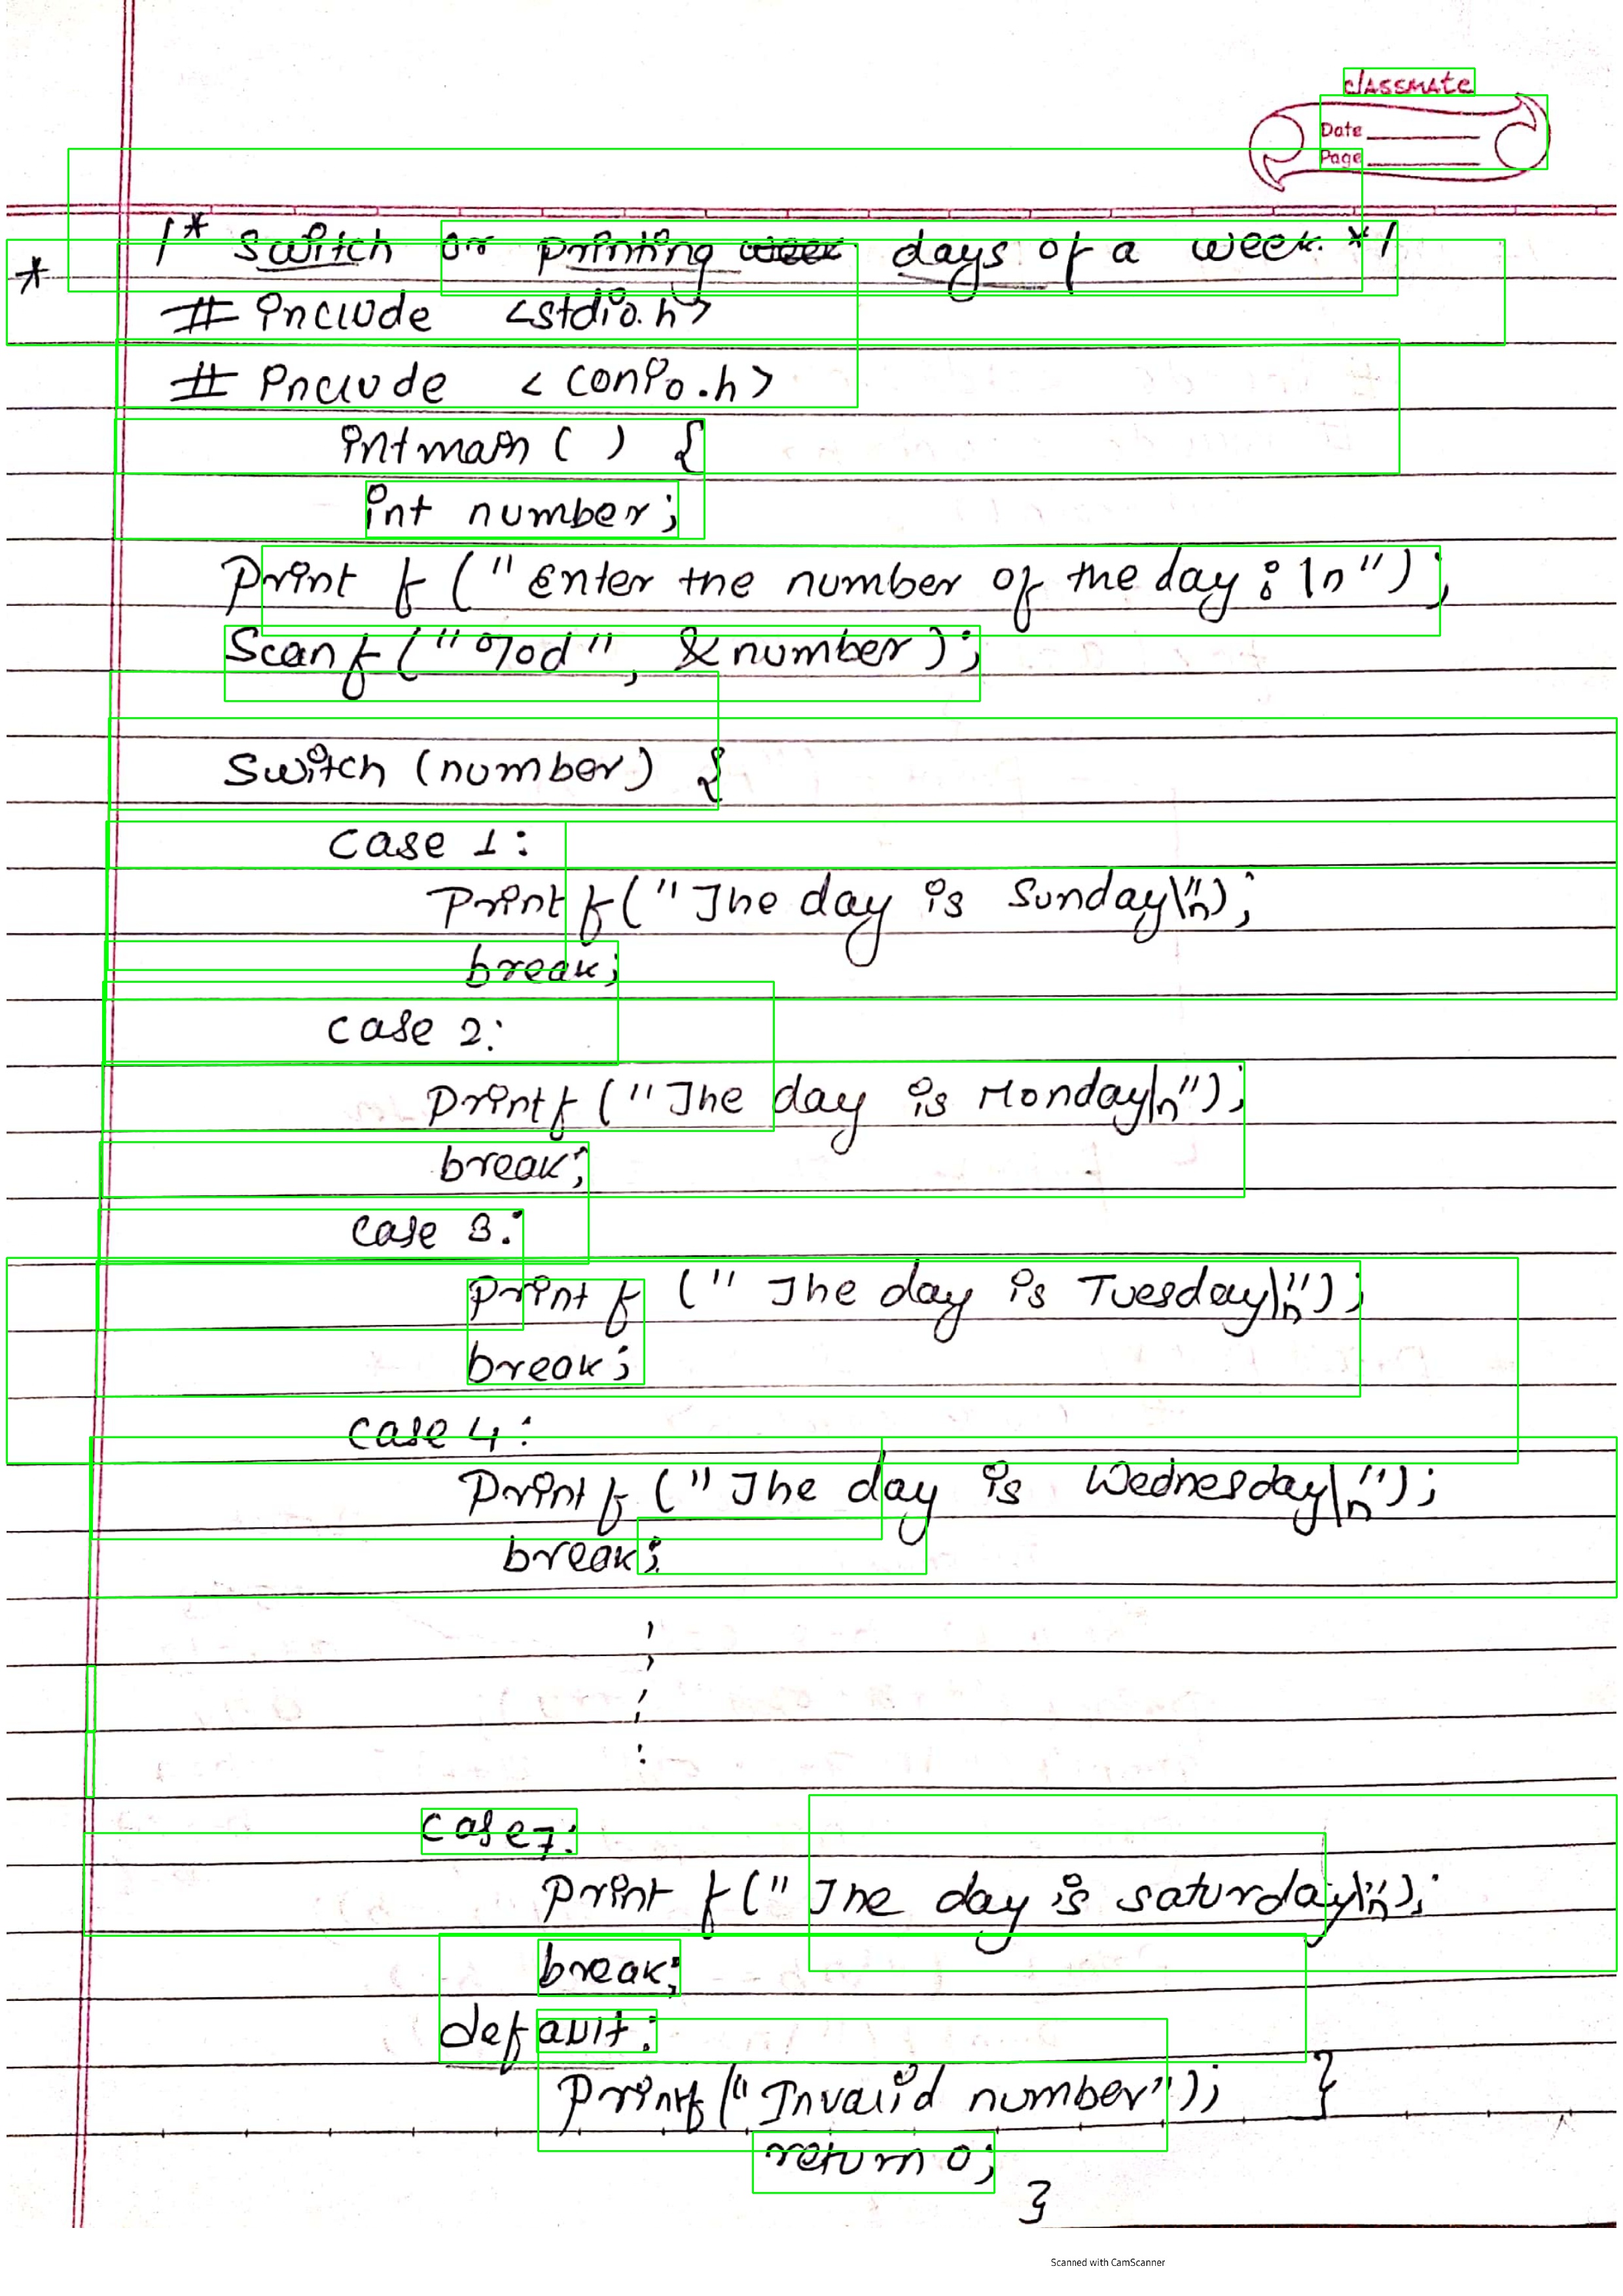 classmate
Date
Page
/* Switch or printing days of a week. */
* # include <stdio.h>
# include <conio.h>
int main ( ) {
int number;
Print f (" Enter the number of the day : \n") ;
Scanf ("%d", & number) ;
Switch (number) {
case 1:
Print f(" The day is Sunday\n");
break;
case 2:
printf (" The day is Monday\n");
break;
case 3:
print f (" The day is Tuesday\n") ;
break;
case 4:
Print f (" The day is Wednesday\n");
break;
case 7:
Print f(" The day is saturday\n");
break;
default:
printf ("Invalid number"); }
return 0;
}
Scanned with CamScanner